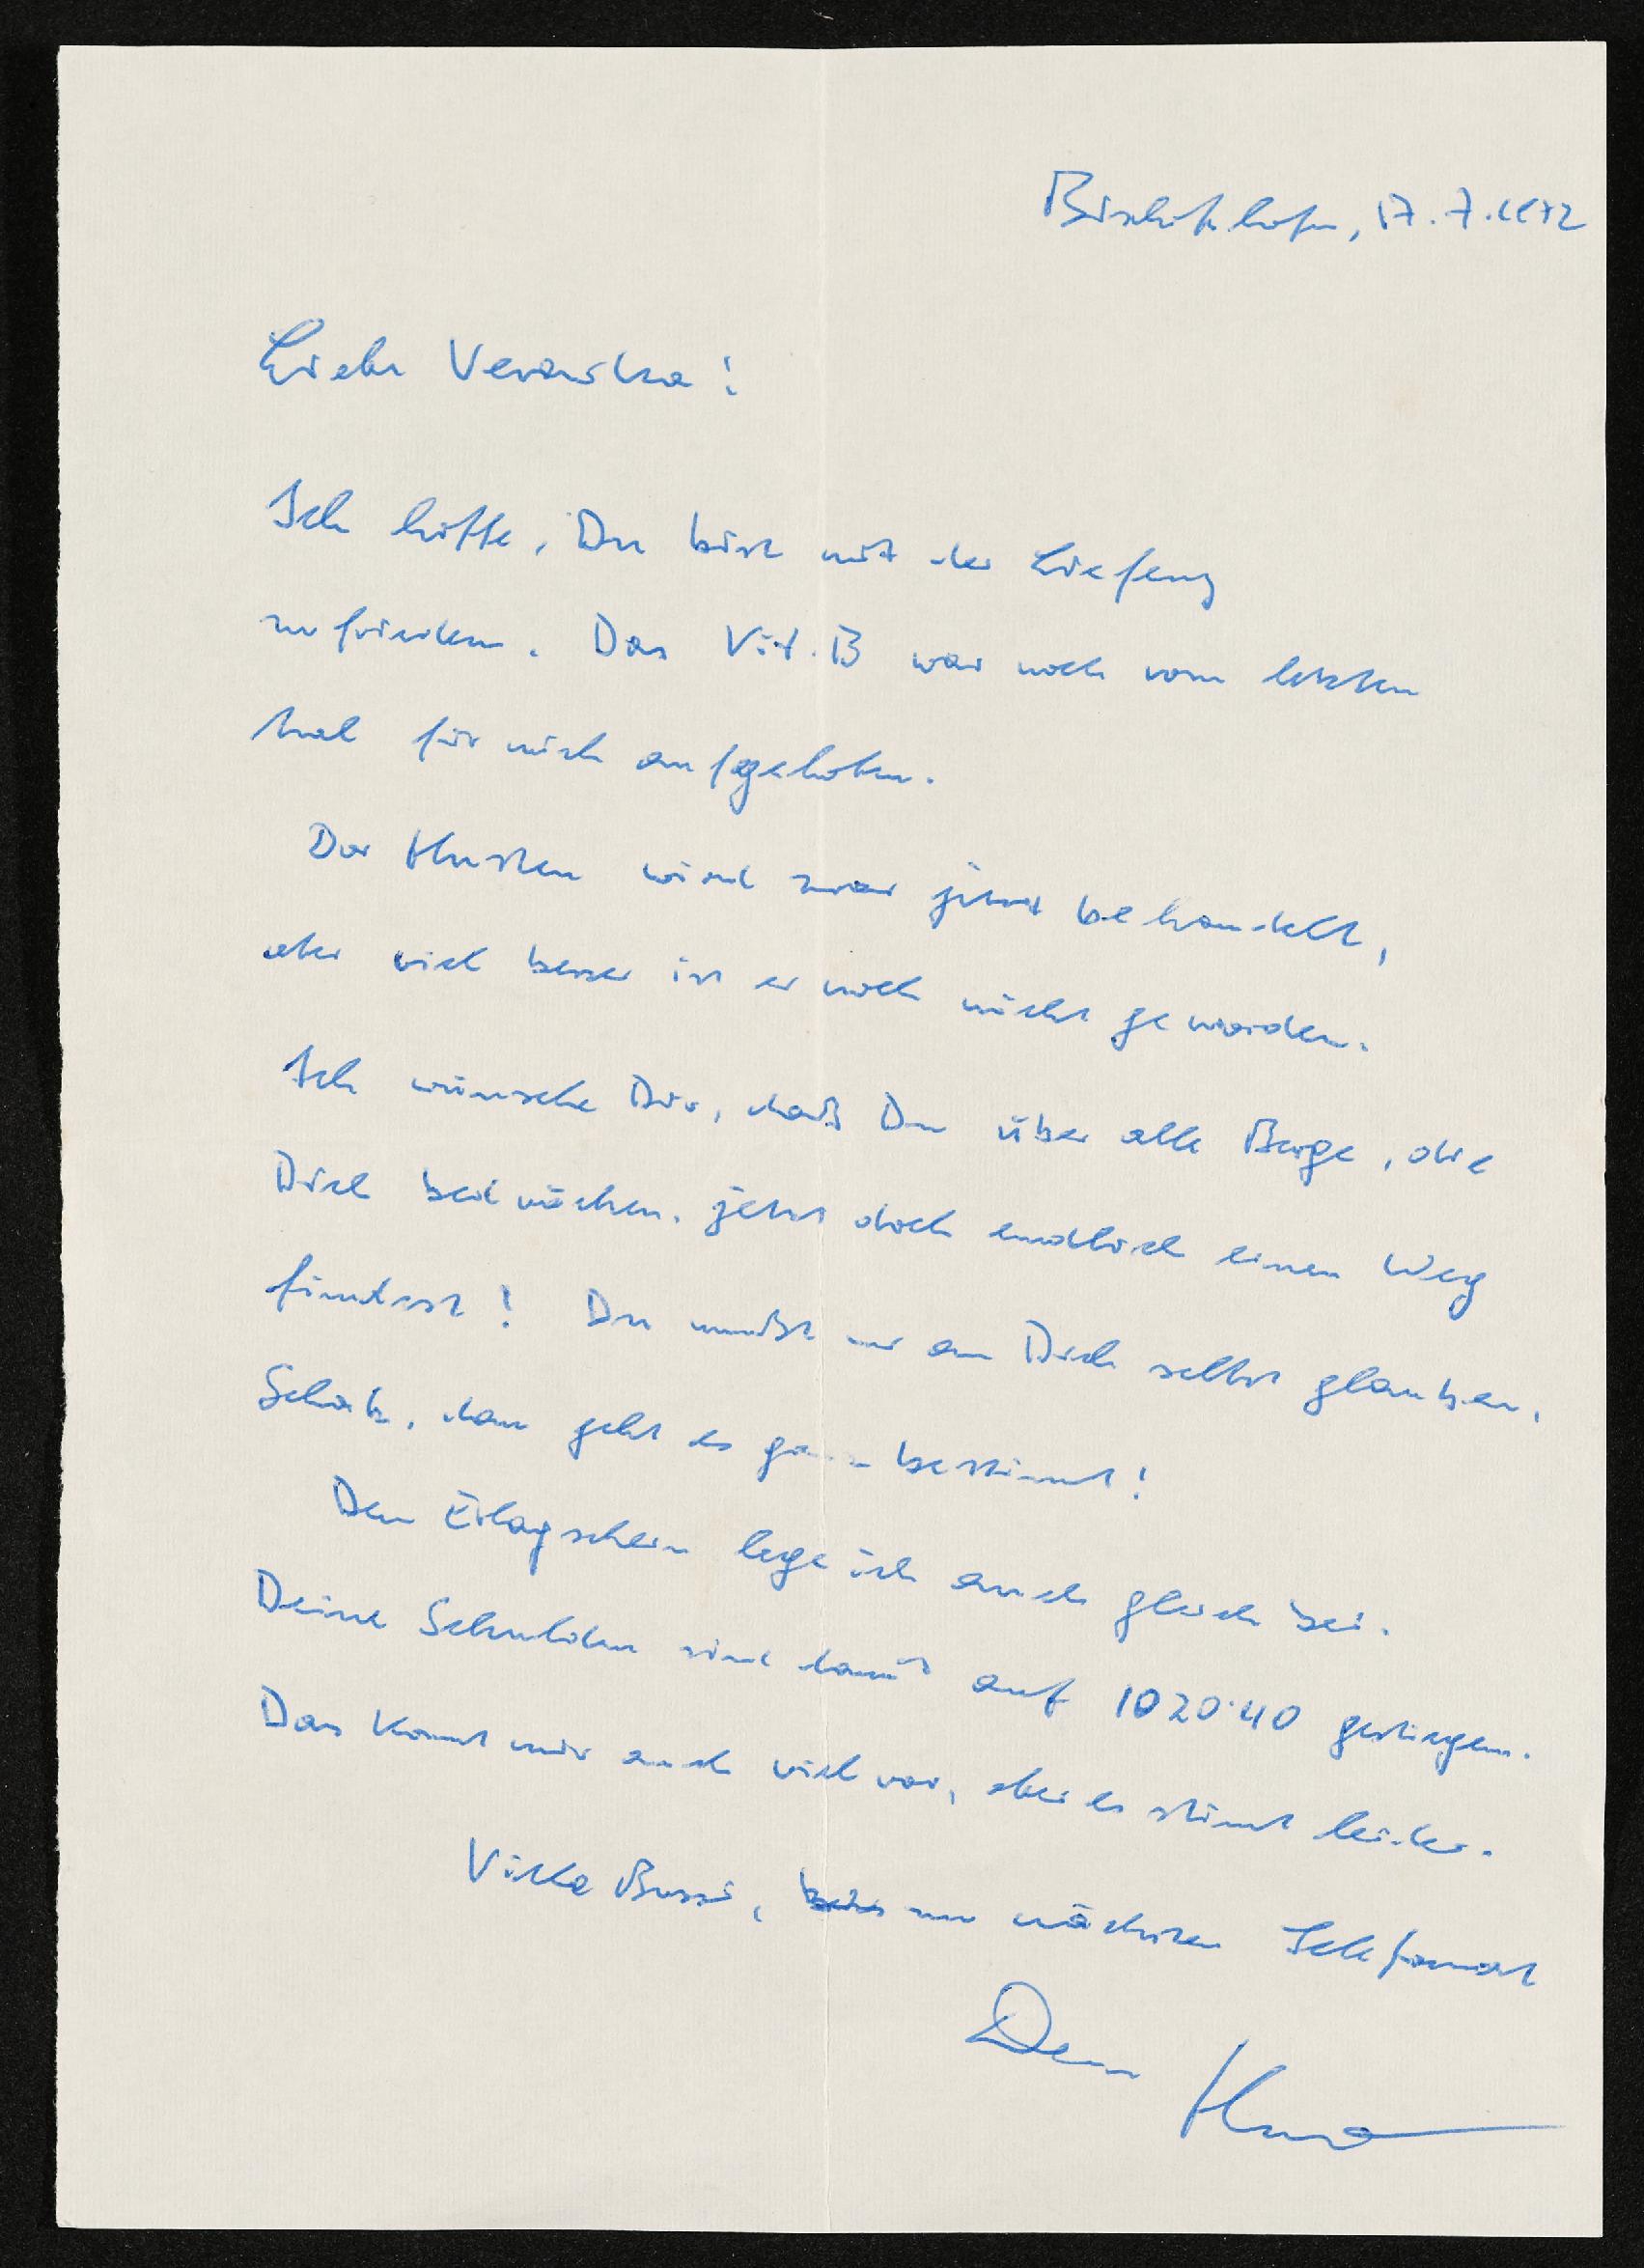 Bischofshofen, 17.7.1972
Liebe Veruschka!
Ich hoffe, Du bist mit der Lieferung
zufrieden. Das Vit. B war noch vom letzten
Mal für mich aufgehoben.
Der Husten wird zwar jetzt behandelt,
aber viel besser ist er noch nicht geworden.
Ich wünsche Dir, daß Du über alle Berge, die
Dich bedrücken, jetzt doch endlich einen Weg
findest! Du mußt nur an Dich selbst glauben,
Schatz, dann geht es ganz bestimmt!
Den Erlagschein lege ich auch gleich bei.
Deine Schulden sind damit auf 1020·40 gestiegen.
Das kommt mir auch viel vor, aber es stimmt leider.
Viele Bussi, bis zum nächsten Telefonat
Dein